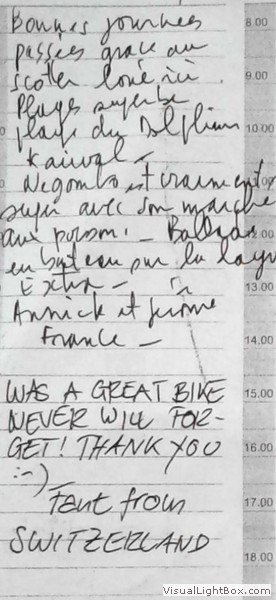 Bonnes journées
passées grâce au
scooter loué ici.
Plages superbe
plage du Dolphin
Kaiwal -
Negombo est vraiment
super avec son marché
aux poissons. - Ballade
en bateau sur la lagune
Extra -
Annick et Jérôme
France -
WAS A GREAT BIKE
NEVER WILL FOR-
GET! THANK YOU
:-)
from
SWITZERLAND
8.00
9.00
10.00
12.00
13.00
14.00
15.00
16.00
17.00
18.00
VisualLightBox.com